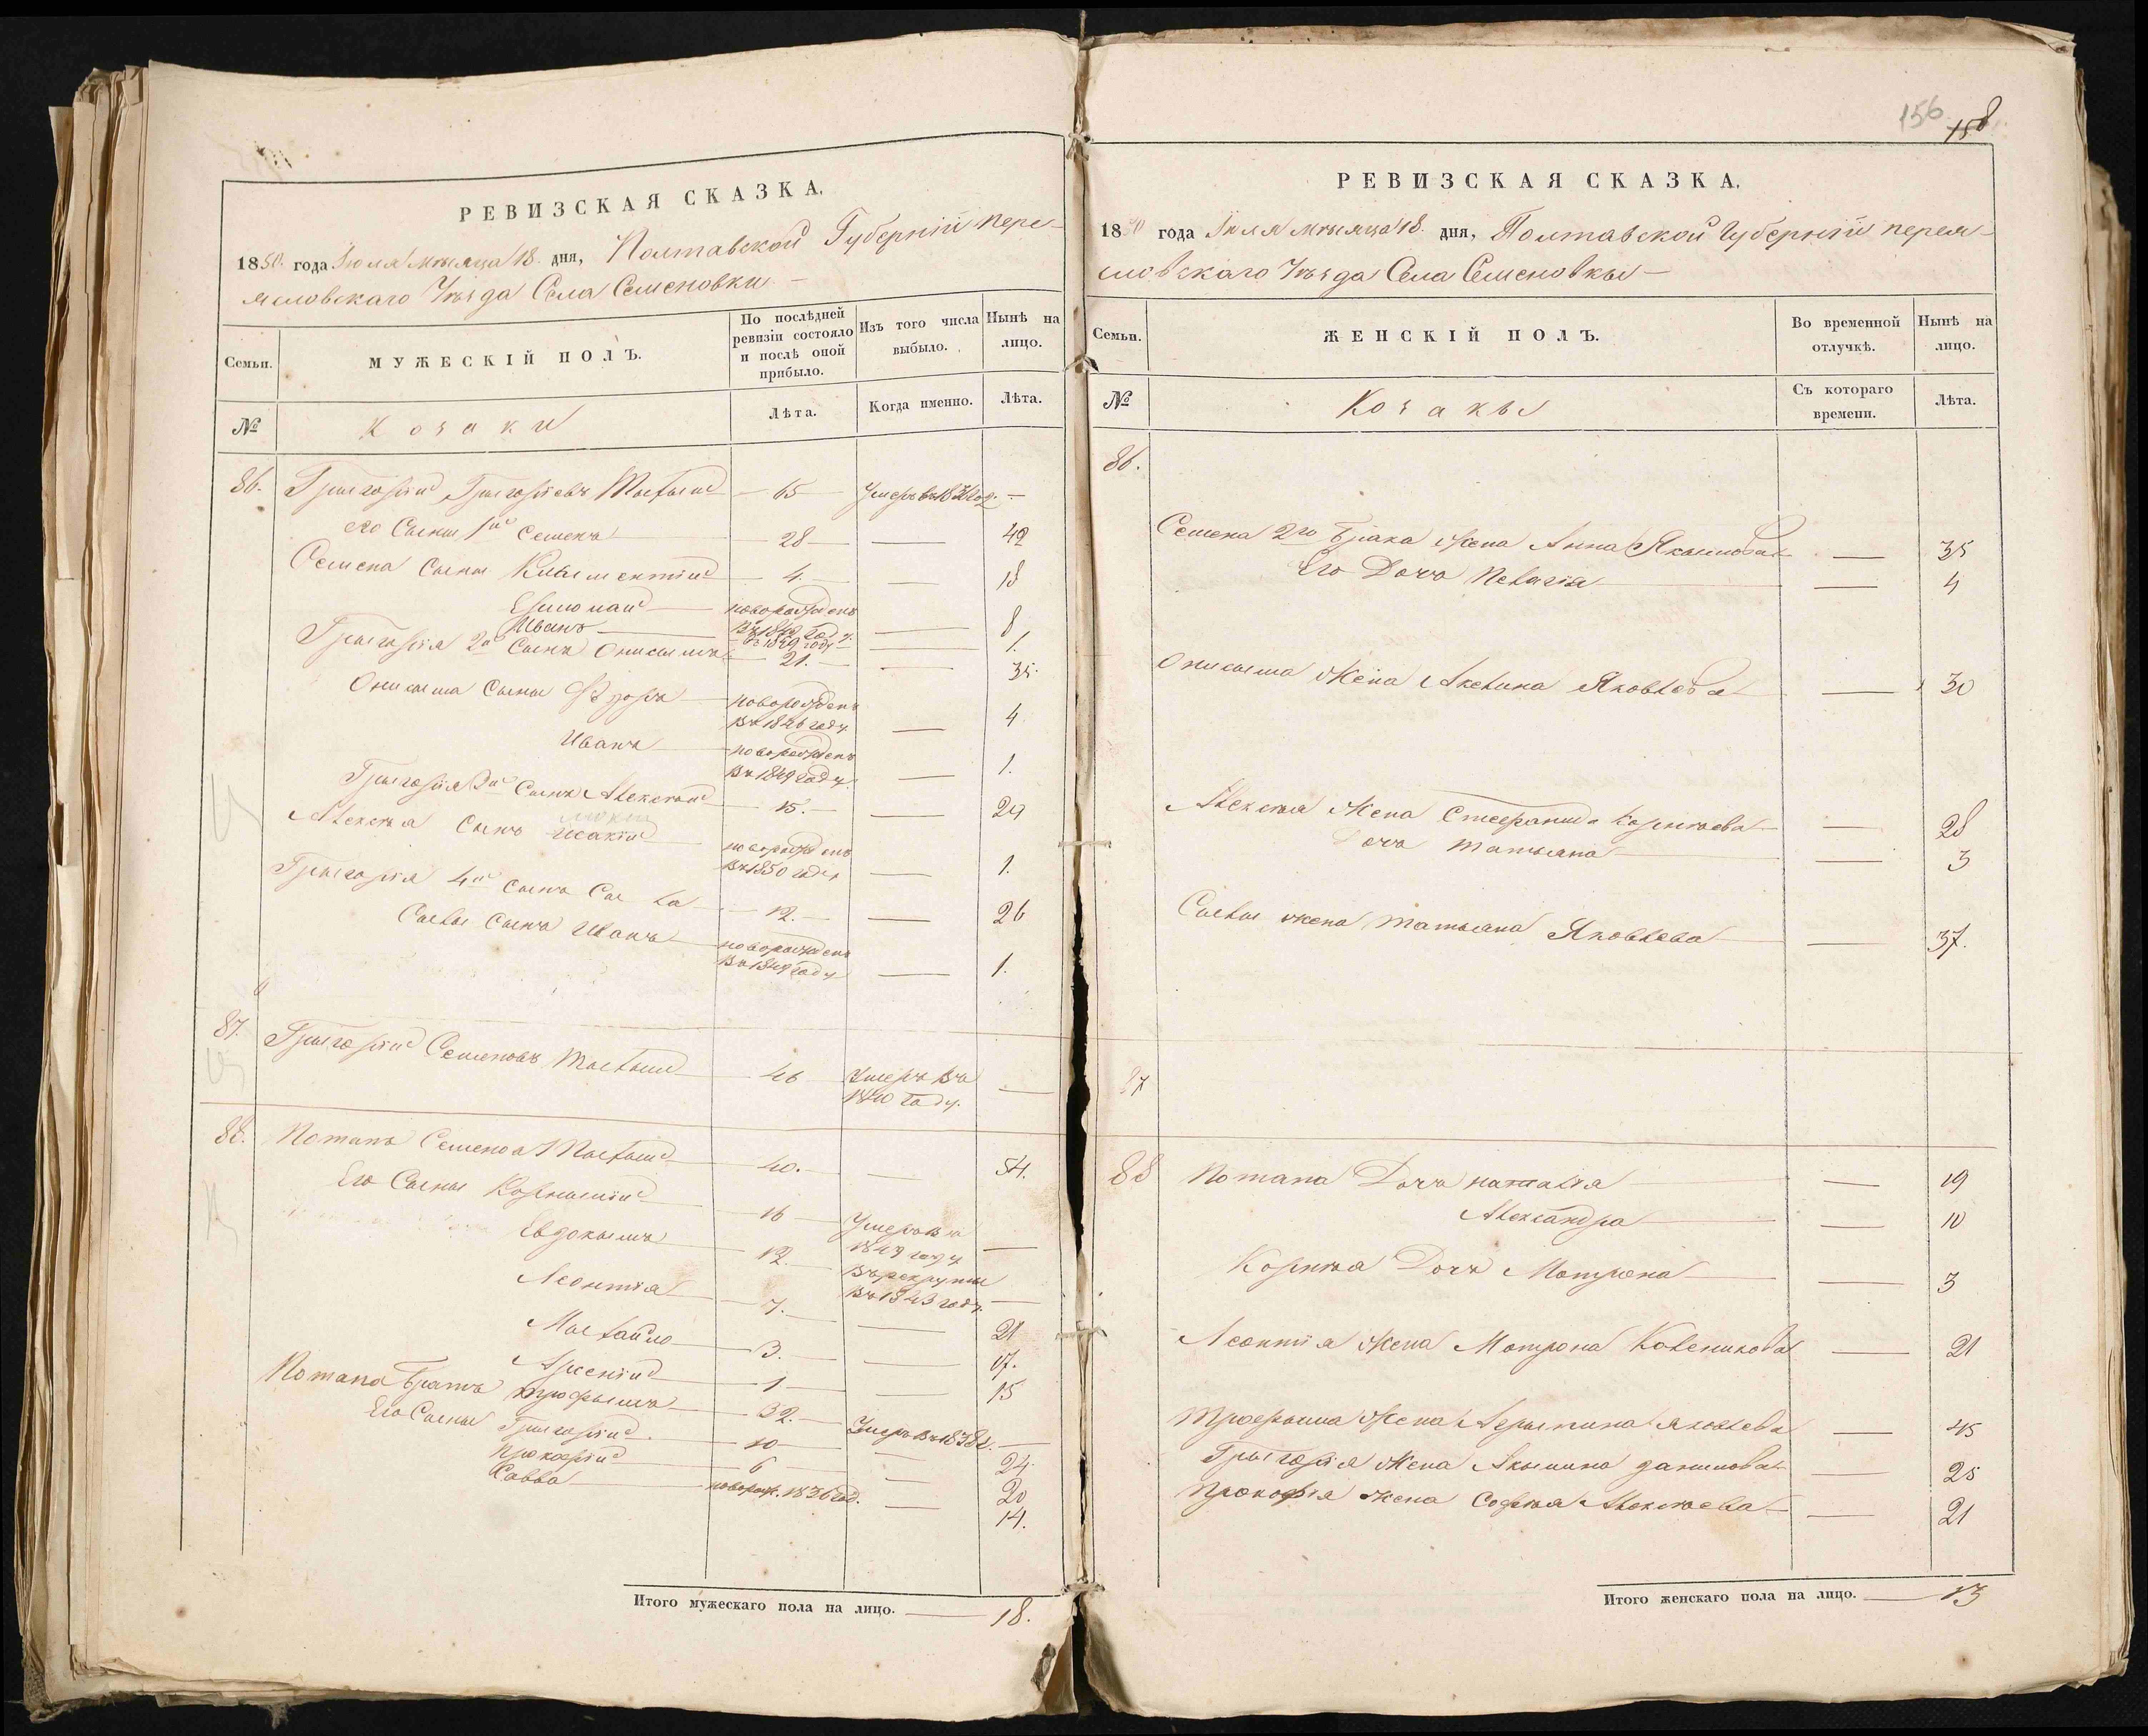 РЕВИЗСКАЯ СКАЗКА.
1850. года Іюля мѣсяца 18 дня, Полтавской Губерніи пере-
яславскаго Уѣзда Села Семеновки
Семьи.
МУЖЕСКІЙ ПОЛЪ.
По послѣдней ревизіи состояло и послѣ оной прибыло.
Изъ того числа выбыло.
Нынѣ на лицо.
№
Козаки
Лѣта.
Когда именно.
Лѣта.
86. Григорій Григоріевъ 65 Умеръ въ
его Сыны 1й Семенъ 28 42
Семена Сыны 4. 18
новорожденъ
въ 1842 году 8
Иванъ въ 1849 году 1.
Григорія 2й Сынъ Онисымъ 21. 35.
Онисыма Сыны новорожденъ
въ 1846 году 4
Иванъ новорожденъ
въ 1849 году. 1.
Григорія 3й Сынъ Алексѣй 15. 29
Алексѣя Сынъ Исакій новорожденъ
въ 1850 году 1.
Григорія 4й Сынъ Са ва 12. 26
Сынъ Иванъ новорожденъ
въ 1849 году 1.
87. Григорій Семеновъ 46 Умеръ въ
1840 году.
88. Потапъ Семеновъ 40. 54.
Его Сыны Корнылій 16 Умеръ въ
1847 году
Евдокымъ 12. Въ рекруты
въ 1843 году.
Леонтія 7. 21
Мыхайло 3. 17.
Арсеній 1 15
Потапа братъ Трофымъ 32. Умеръ въ 1838 г.
Его Сыны Григорій. 10 24.
Прокофій 6 20
Савва новорож. 1836 год. 14.
Итого мужескаго пола на лицо. 18.
156
158
РЕВИЗСКАЯ СКАЗКА.
1850 года Іюля мѣсяца 18. дня, Полтавской Губерніи перея-
словскаго Уѣзда Села Семеновкы
Семьи.
ЖЕНСКІЙ ПОЛЪ.
Во временной отлучкѣ.
Нынѣ на лицо.
№
Козакы
Съ котораго времени.
Лѣта.
86.
Семена 2го брака Жена Анна Якымова 35
Его Дочь Пелагія 4
Онисыма Жена Акелина Яковлева 30
Алексѣя Жена Стефанида Корнѣева 28
Дочь Татьяна 3
Савы жена Татьяна Яковлева 37.
87
88 Потапа Дочь Наталія 19
Александра 10
Корнѣя Дочь Мотрона 3
Леонтія Жена Мотрона 21
Трофыма Жена Яковлева 45
Григорія Жена Акылина Данилова 25
Прокофія жена Софія Алексѣева 21
Итого женскаго пола на лицо. 13